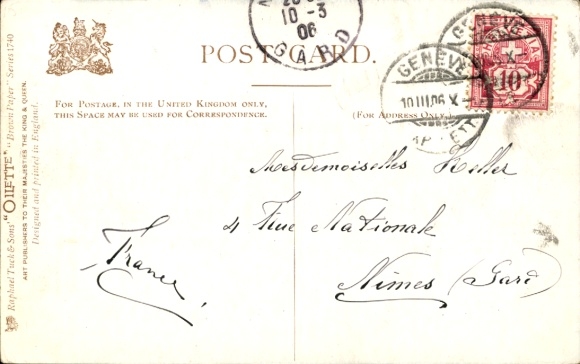 10-3
06
GARD
POST CARD.
GENÈVE
GENÈVE
10 III 06 X
10
FOR POSTAGE, IN THE UNITED KINGDOM ONLY,
THIS SPACE MAY BE USED FOR CORRESPONDENCE.
(FOR ADDRESS ONLY.)
Raphael Tuck & Sons' "OILETTE" "Brown Paper" Series 1740
ART PUBLISHERS TO THEIR MAJESTIES THE KING & QUEEN.
Designed and printed in England.
Mesdemoiselles Keller
4 Rue Nationale
Nîmes (Gard)
France